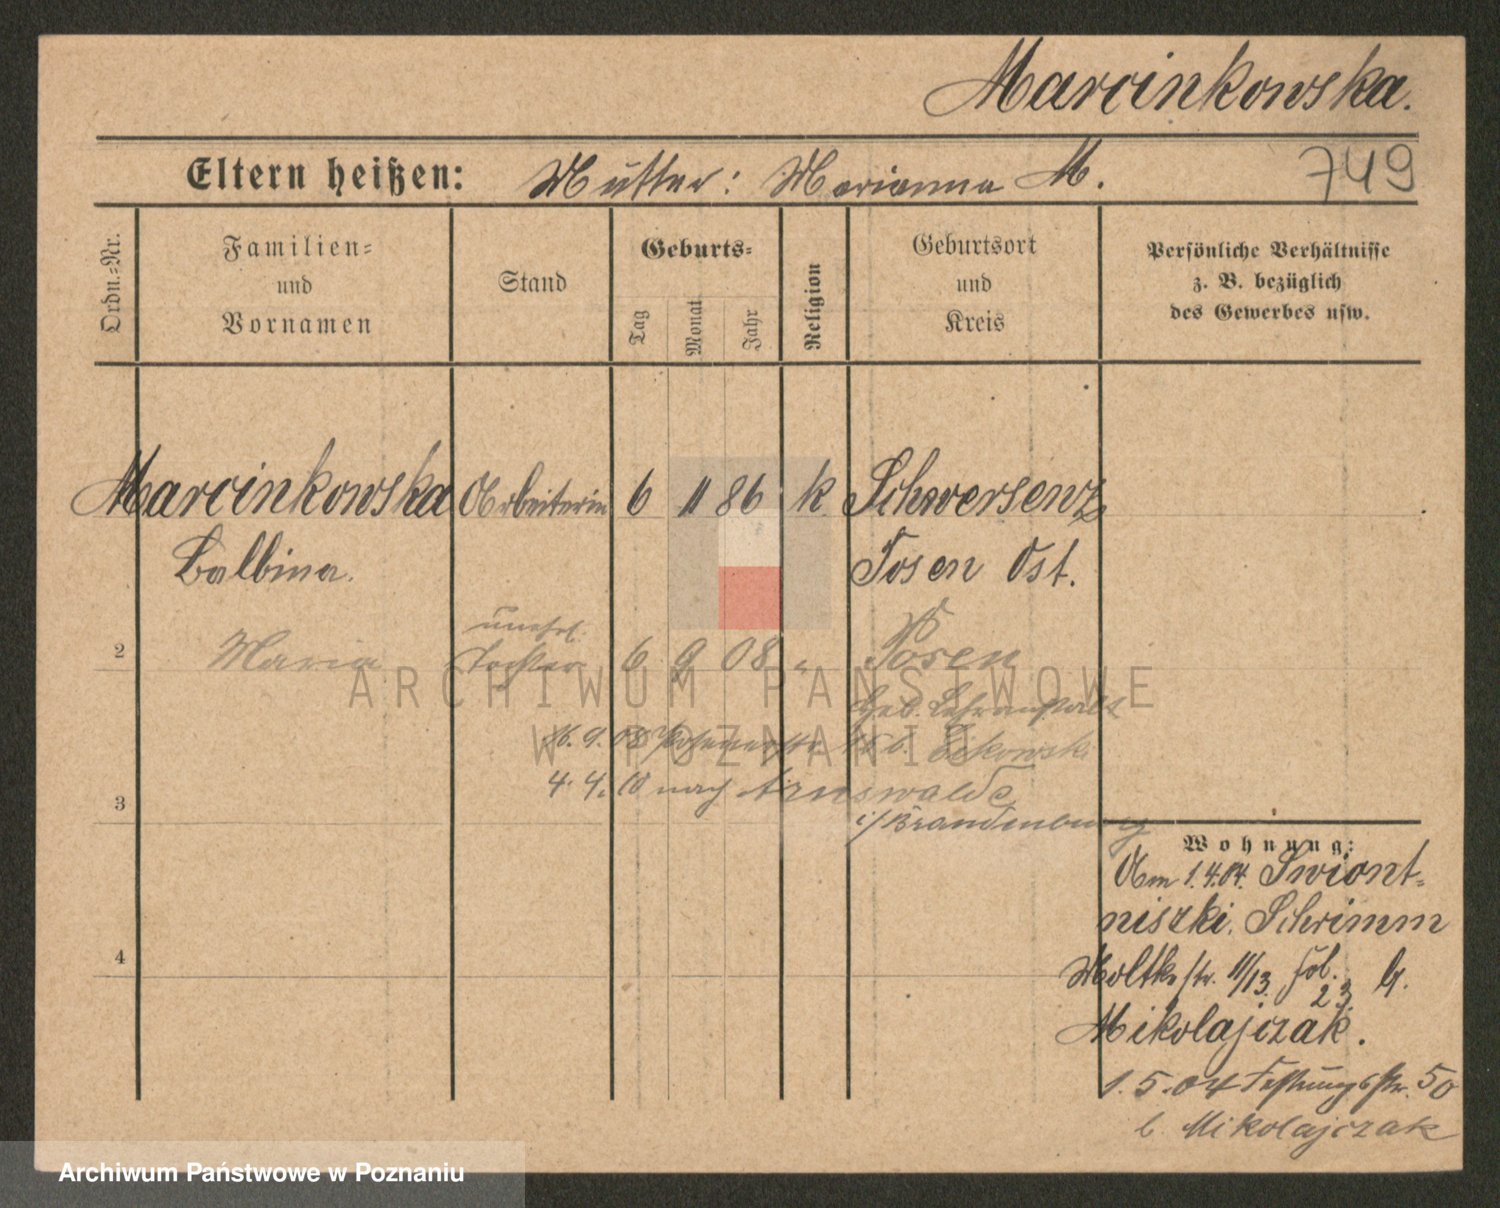 Marcinkowska.
Eltern heißen: Mutter: Marianna M.
749
Ordn.=Nr.
Familien=
und
Vornamen
Stand
Geburts=
Tag
Monat
Jahr
Religion
Geburtsort
und
Kreis
Persönliche Verhältnisse
z. B. bezüglich
des Gewerbes usw.
Marcinkowska Arbeiterin 6 11 86 k Schwersenz
Balbina. Posen Ost.
unehl.
2 Maria Tochter 6 9 08 " Posen
Geb. Lehranstalt
16. 9. 08 Posenerstr. b.
4. 4. 10 nach Arnswalde
3
i/Brandenburg
Wohnung:
Am 1.4.04. Swiont=
niszki, Schrimm
4
Moltkestr. 11/13. b.
23
Mikolajczak.
1.5.04 Festungsstr. 50
b. Mikolajczak
ARCHIWUM PAŃSTWOWE
W POZNANIU
Archiwum Państwowe w Poznaniu